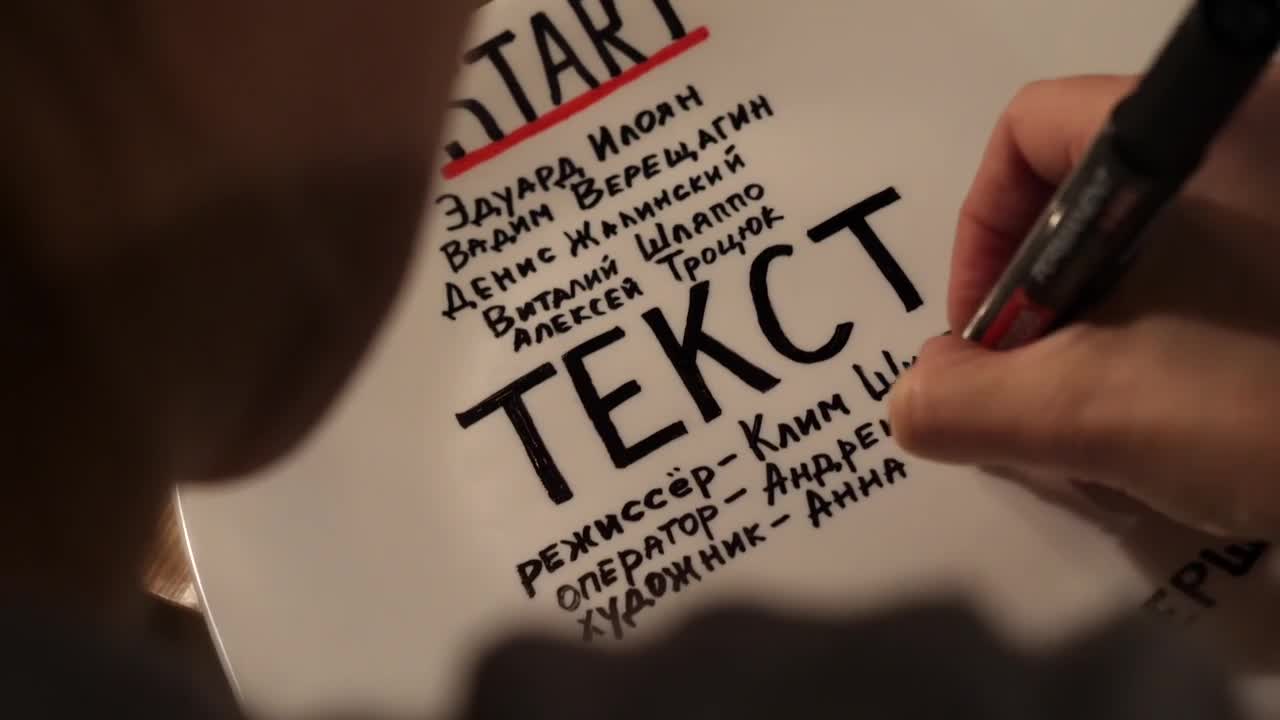 START
Эдуард Илоян
Вадим Верещагин
Денис Жалинский
Виталий Шляппо
Алексей Троцюк
ТЕКСТ
режиссёр - Клим
оператор -
художник - Анна